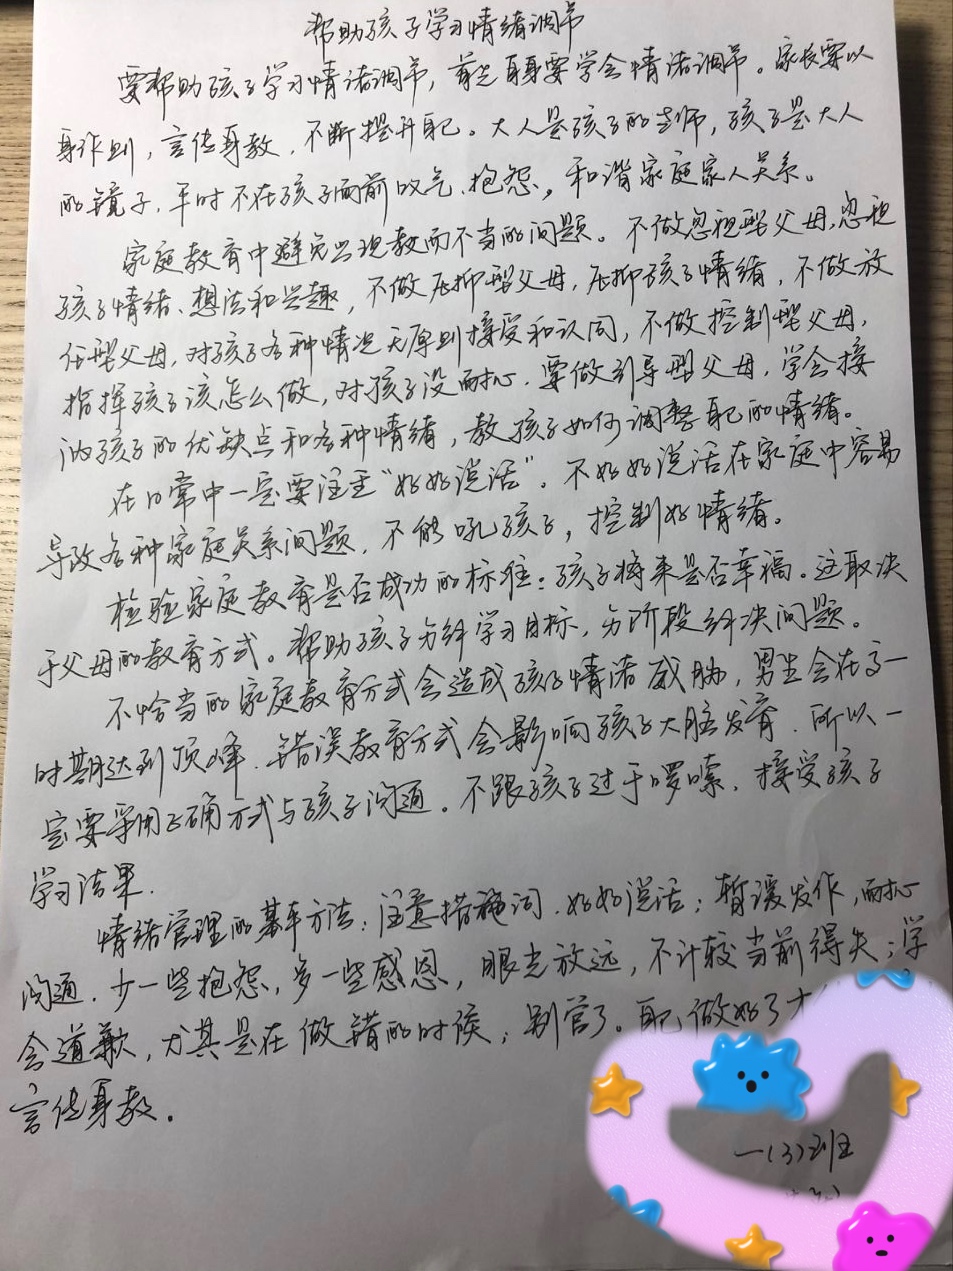 帮助孩子学习情绪调节
要帮助孩子学习情绪调节，首先自身要学会情绪调节。家长要以
身作则，言传身教，不断提升自己。大人是孩子的老师，孩子是大人
的镜子，平时不在孩子面前叹气、抱怨，和谐家庭家人关系。
家庭教育中避免出现教而不当的问题。不做忽视型父母，忽视
孩子情绪、想法和兴趣，不做压抑型父母，压抑孩子情绪，不做放
任型父母，对孩子各种情况无原则接受和认同，不做控制型父母，
指挥孩子该怎么做，对孩子没耐心，要做引导型父母，学会接
纳孩子的优缺点和各种情绪，教孩子如何调整自己的情绪。
在日常中一定要注重“好好说话”，不好好说话在家庭中容易
导致各种家庭关系问题，不能吼孩子，控制好情绪。
检验家庭教育是否成功的标准：孩子将来是否幸福。这取决
于父母的教育方式。帮助孩子分解学习目标，分阶段解决问题。
不恰当的家庭教育方式会造成孩子情绪威胁，男生会在高一
时期达到顶峰，错误教育方式会影响孩子大脑发育，所以一
定要采用正确方式与孩子沟通。不跟孩子过于啰嗦，接受孩子
学习结果.
情绪管理的基本方法：注意措施词，好好说话；暂缓发作，耐心
沟通，少一些抱怨，多一些感恩，眼光放远，不计较当前得失；学
会道歉，尤其是在做错的时候；别管了。自己做好了才
言传身教。
一(3)班